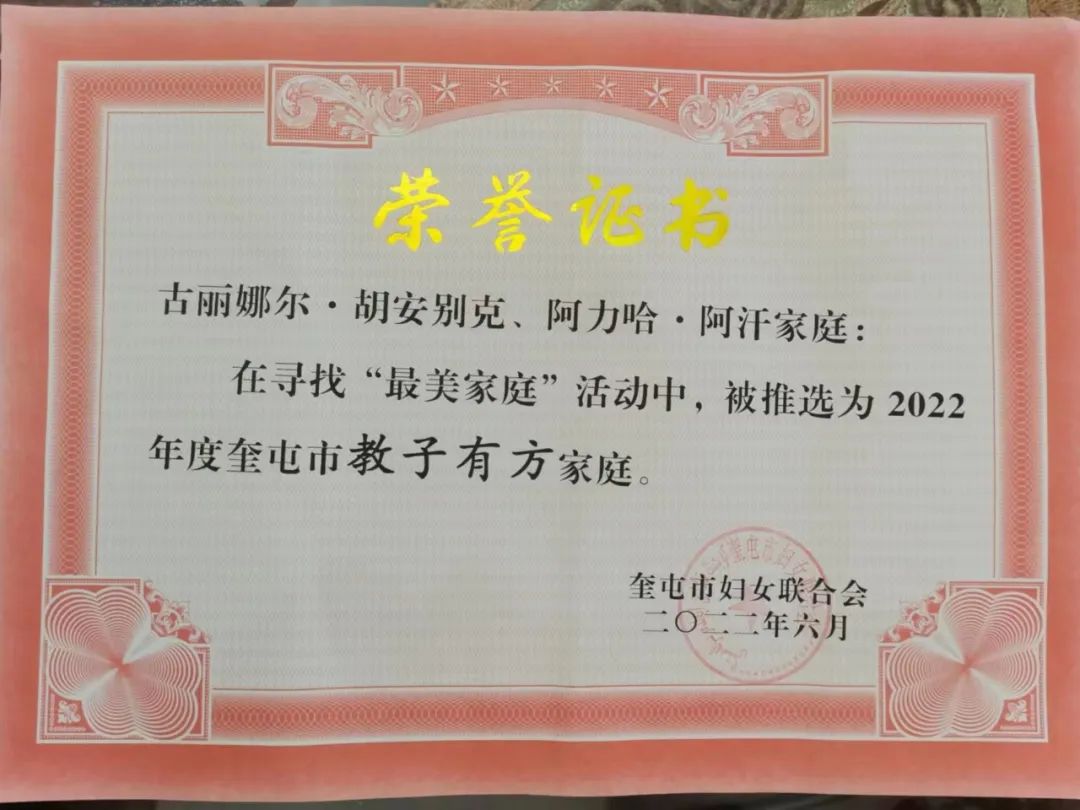 荣誉证书
古丽娜尔·胡安别克、阿力哈·阿汗家庭：
在寻找“最美家庭”活动中，被推选为 2022
年度奎屯市教子有方家庭。
奎屯市妇女联合会
二〇二二年六月